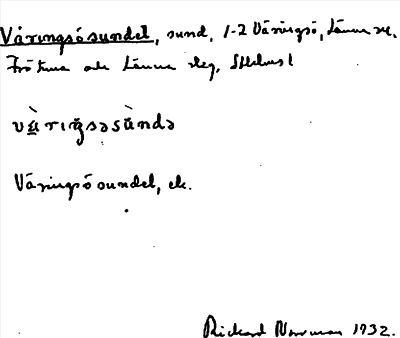 Väringsösundet, sund, 1-2 Väringsö, Länna sk.
Frötuna och Länna skg, Sthlms l
Väringsösundet, ek.
Rickard Norrman 1932.